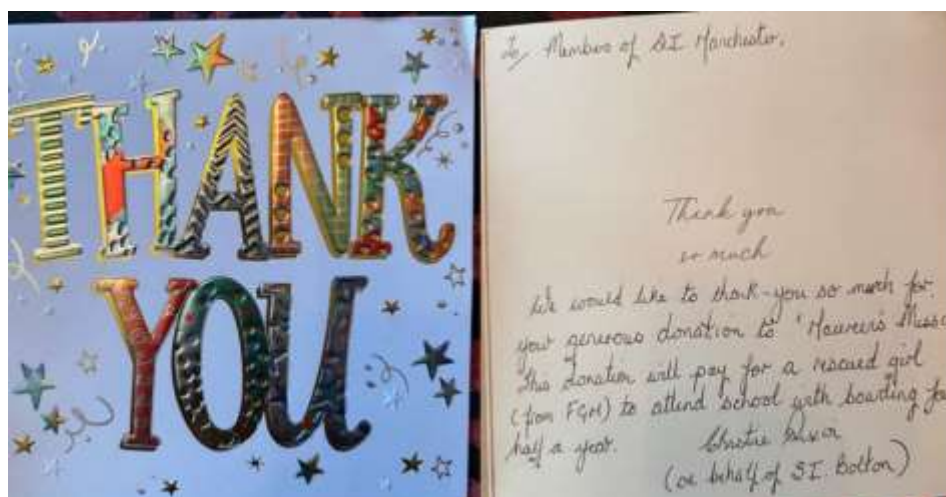 THANK
YOU
To/ Members of S.I Manchester.
Thank you
so much
We would like to thank-you so much for
your generous donation to 'Maureen's
This donation will pay for a rescued girl
(from FGM) to attend school with boarding for
half a year. Christie
(on behalf of S.I. Bolton)